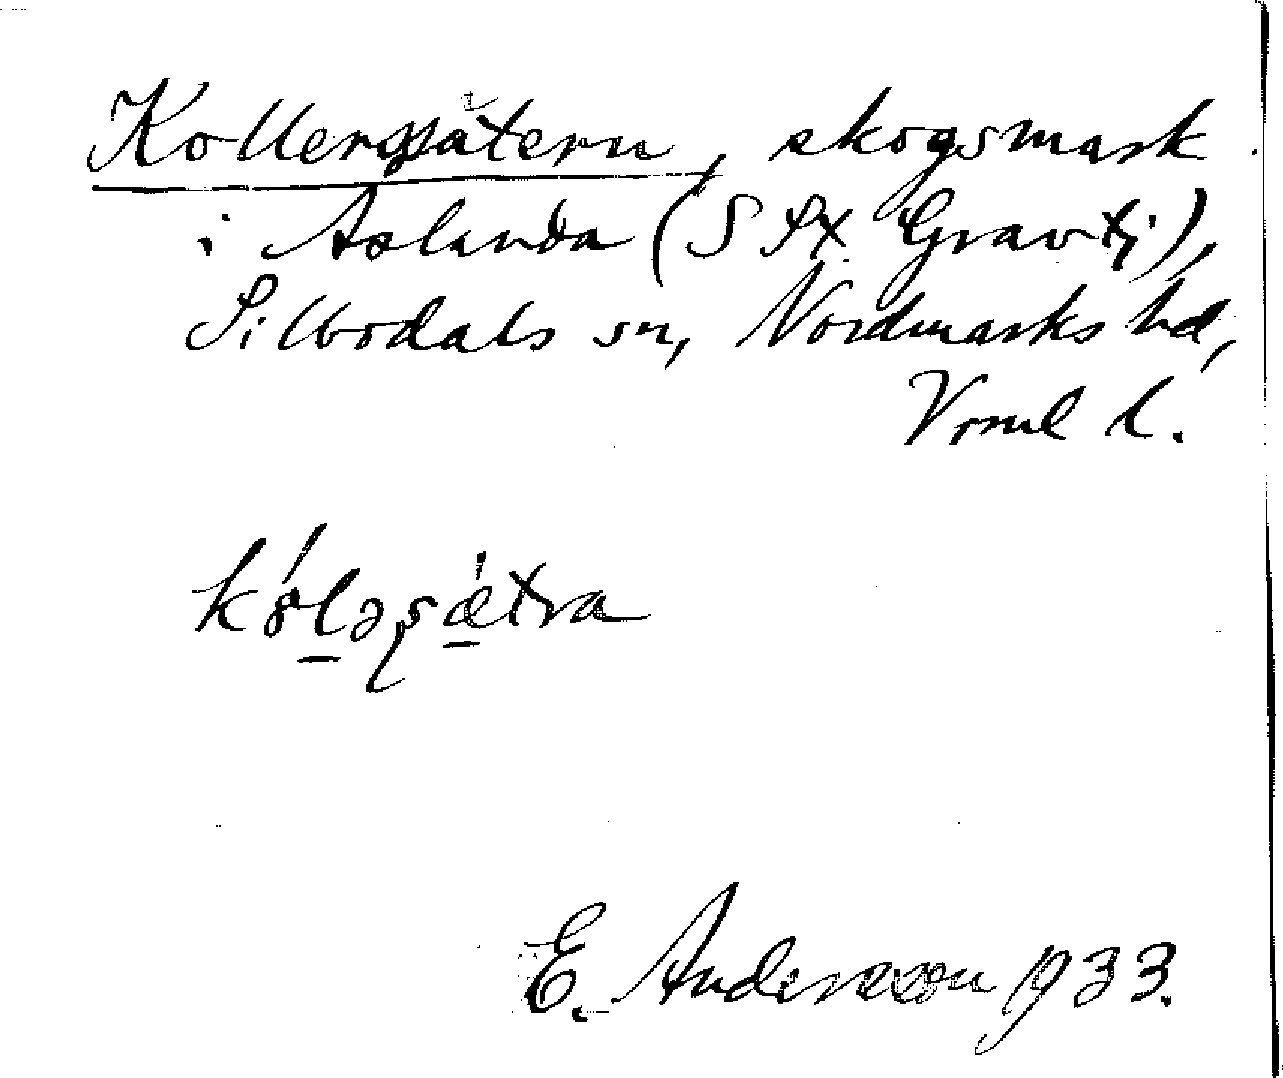 Kollersätern, skogsmark
i Åslanda (S St. Gravtj),
Silbodals sn, Nordmarks hd,
Vrml l.
kɷ́ləsǽtra
E. Andersson 1933.